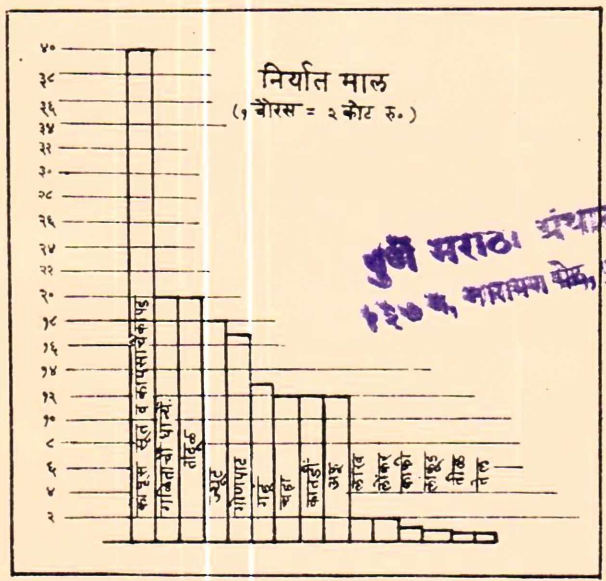 निर्यात माल
(१ चौरस = २ कोट रु.)
४०
३८
३६
३४
३२
३०
२८
२६
२४
२२
२०
१८
१६
१४
१२
१०
८
६
४
२
कापूस सूत व कापसाचें कापड
गळिताचीं धान्यें
तांदूळ
ज्यूट
गोणपाट
गहूं
चहा
कातडीं
अफू
लाख
लोंकर
काफी
लांकूड
नीळ
तेल
पुणें मराठी ग्रंथा
नारायण पेठ,